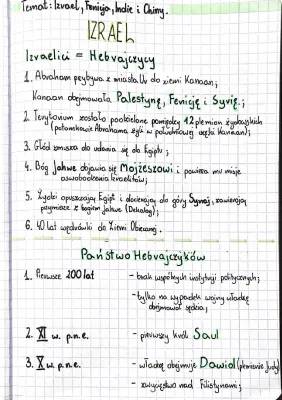 Temat: Izrael, Fenicja, Indie i Chiny.
IZRAEL
Izraelici = Hebrajczycy
1. Abraham przybywa z miasta Ur do ziemi Kanaan;
Kanaan obejmowała Palestynę, Fenicję i Syrię;
2. Terytorium zostało podzielone pomiędzy 12 plemion żydowskich
(potomkowie Abrahama żyli w południowej części Kanaan);
3. Głód zmusza do udania się do Egiptu;
4. Bóg Jahwe objawia się Mojżeszowi i powierza mu misję
oswobodzenia Izraelitów;
5. Żydzi opuszczają Egipt i docierają do góry Synaj, zawierają
przymierze z bogiem Jahwe (Dekalog);
6. 40 lat wędrówki do Ziemi Obiecanej.
Państwo Hebrajczyków
1. Pierwsze 200 lat - brak wspólnych instytucji politycznych;
- tylko na wypadek wojny władzę
obejmował sędzia;
2. XI w. p.n.e. - pierwszy król Saul
3. X w. p.n.e. - władzę obejmuje Dawid (plemienia Judy)
- zwycięstwo nad Filistynami;